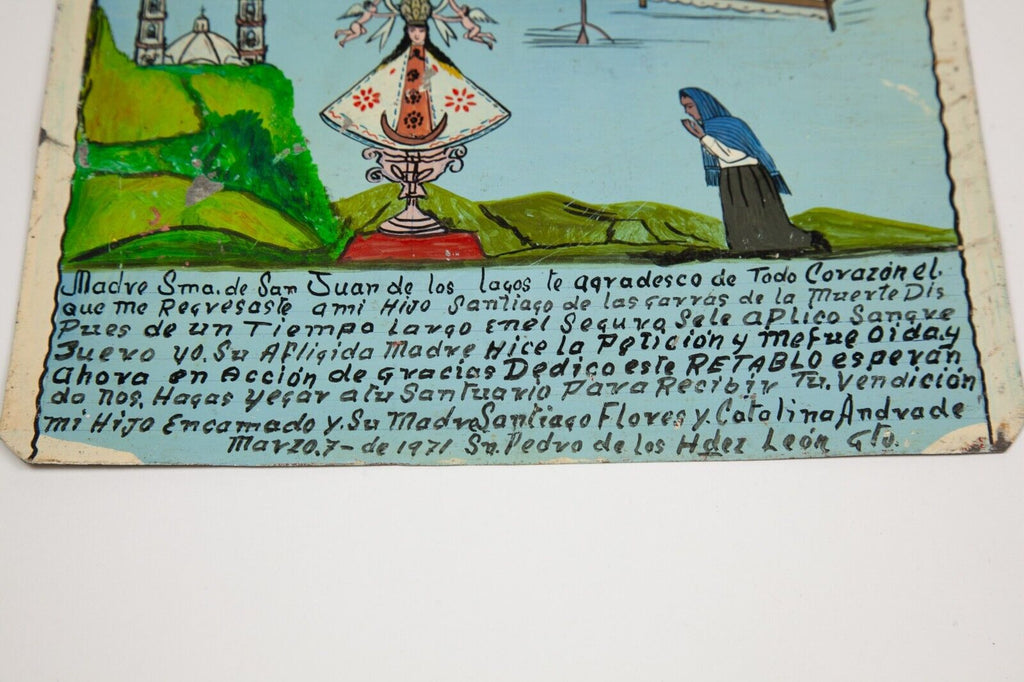 Madre Sma. de San Juan de los lagos te agradesco de Todo Corazón el
que me Regresaste ami Hijo Santiago de las garras de la Muerte Dis
Pues de un Tiempo Largo Enel Seguro Sele aplico Sangre
Suero yo. Su Afligida Madre Hice la Petición y Mefue Oida, y
ahora en Acción de gracias Dedico este RETABLO esperan
do nos. Hagas yegar atu Santuario Para Recibir Tu. Vendición
mi Hijo Encamado y. Su Madre Santiago Flores y. Catalina Andrade
Marzo. 7- de 1971 Sn. Pedro de los Hdez León Gto.